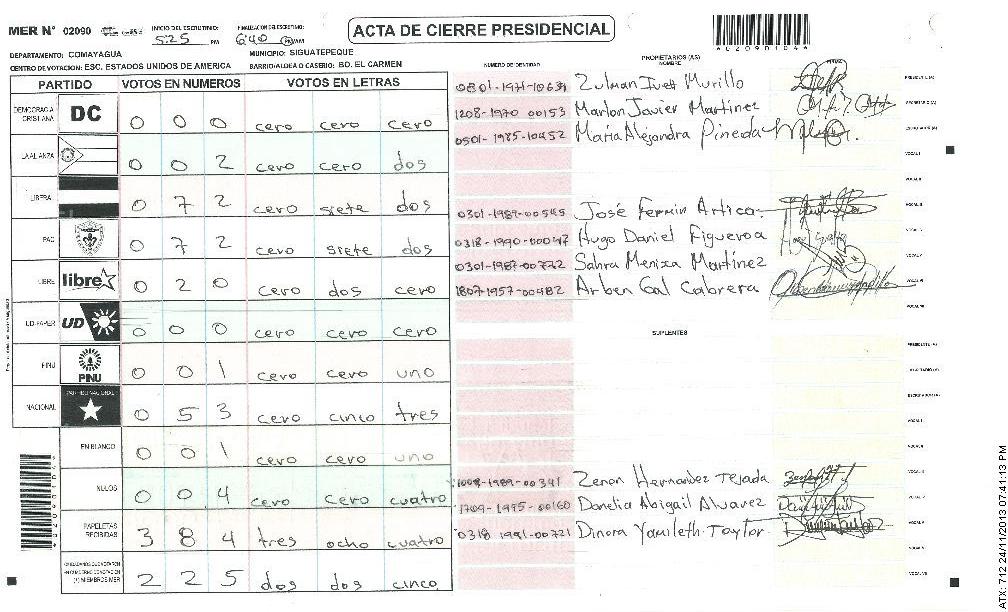 MER Nº 02090 INICIO DEL ESCRUTINIO: 5:25 PM FINALIZACION DEL ESCRUTINIO: 6:40 PM
ACTA DE CIERRE PRESIDENCIAL
DEPARTAMENTO: COMAYAGUA MUNICIPIO: SIGUATEPEQUE
CENTRO DE VOTACION: ESC. ESTADOS UNIDOS DE AMERICA BARRIO/ALDEA O CASERIO: BO. EL CARMEN
PARTIDO VOTOS EN NUMEROS VOTOS EN LETRAS
DEMOCRACIA CRISTIANA DC 0 0 0 cero cero cero
LA ALIANZA 0 0 2 cero cero dos
LIBERAL 0 7 2 cero siete dos
PAC 0 7 2 cero siete dos
LIBRE libre 0 2 0 cero dos cero
UD-FAPER UD 0 0 0 cero cero cero
PINU PINU 0 0 1 cero cero uno
NACIONAL PARTIDO NACIONAL 0 5 3 cero cinco tres
EN BLANCO 0 0 1 cero cero uno
NULOS 0 0 4 cero cero cuatro
PAPELETAS RECIBIDAS 3 8 4 tres ocho cuatro
2 2 5 dos dos cinco
NUMERO DE IDENTIDAD PROPIETARIOS (AS) NOMBRE FIRMA
0801-1971-10634 Zulman Ivett Murillo PRESIDENTE (A)
1208-1970 00153 Marlon Javier Martinez SECRETARIO (A)
0501-1985-10452 Maria Alejandra Pineda ESCRUTADOR (A)
VOCAL I
VOCAL II
0301-1989-00545 José Fermin Artica VOCAL III
0318-1990-00047 Hugo Daniel Figueroa
0301-1987-00722 Sahra Menixa Martínez VOCAL V
1807-1957-00482 Arben Gal Cabrera
SUPLENTES
PRESIDENTE (A)
SECRETARIO (A)
ESCRUTADOR (A)
VOCAL I
VOCAL II
1008-1989-00341 Zenon Hernandez Tejada
1709-1995-00160 Danelia Abigail Alvarez
0318 1991-00721 Dinora Yamileth Taylor
ATX: 712 24/11/2013 07:41:13 PM